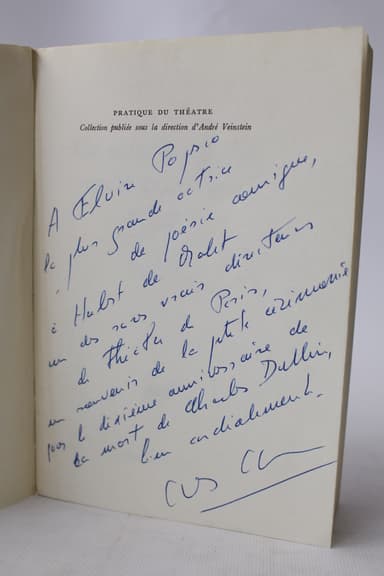 PRATIQUE DU THÉATRE
Collection publiée sous la direction d'André Veinstein
A Elvire Popesco
la plus grande actrice
de poésie comique,
à Hubert de Malet
un des rares vrais directeurs
de théâtre de Paris,
en souvenir de la petite cérémonie
pour le dixième anniversaire de
la mort de Charles Dullin,
bien cordialement.